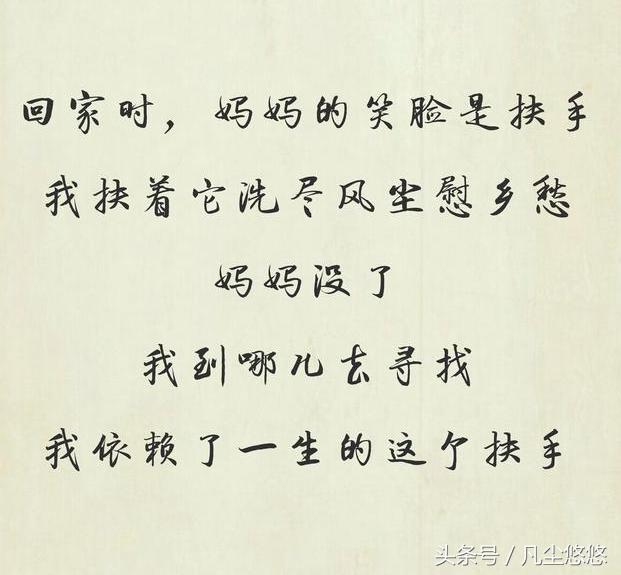 回家时，妈妈的笑脸是扶手
我扶着它洗尽风尘慰乡愁
妈妈没了
我到哪儿去寻找
我依赖了一生的这个扶手
头条号／凡尘悠悠